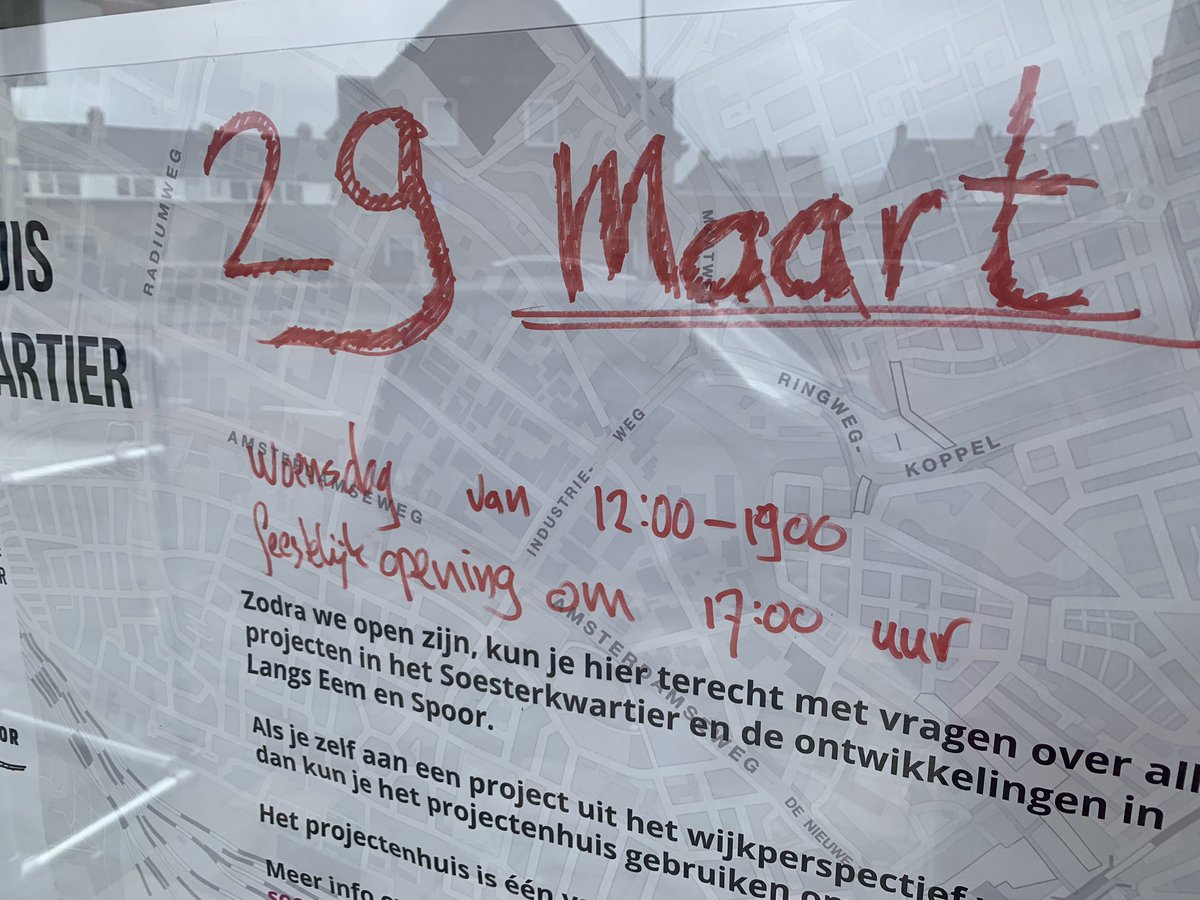 29 Maart
woensdag van 12:00-1900
feestelijk opening om 17:00 uur
Zodra we open zijn, kun je hier terecht met vragen over all
projecten in het Soesterkwartier en de ontwikkelingen in
Langs Eem en Spoor.
Als je zelf aan een project uit het wijkperspectief
dan kun je het projectenhuis gebruiken
Het projectenhuis is één
Meer info
UIS
ARTIER
OOR
R
RADIUMWEG
AMSTERDAMSEWEG
INDUSTRIE-
WEG
RINGWEG-
KOPPEL
AMSTERDAMSEWEG
DE NIEUWE